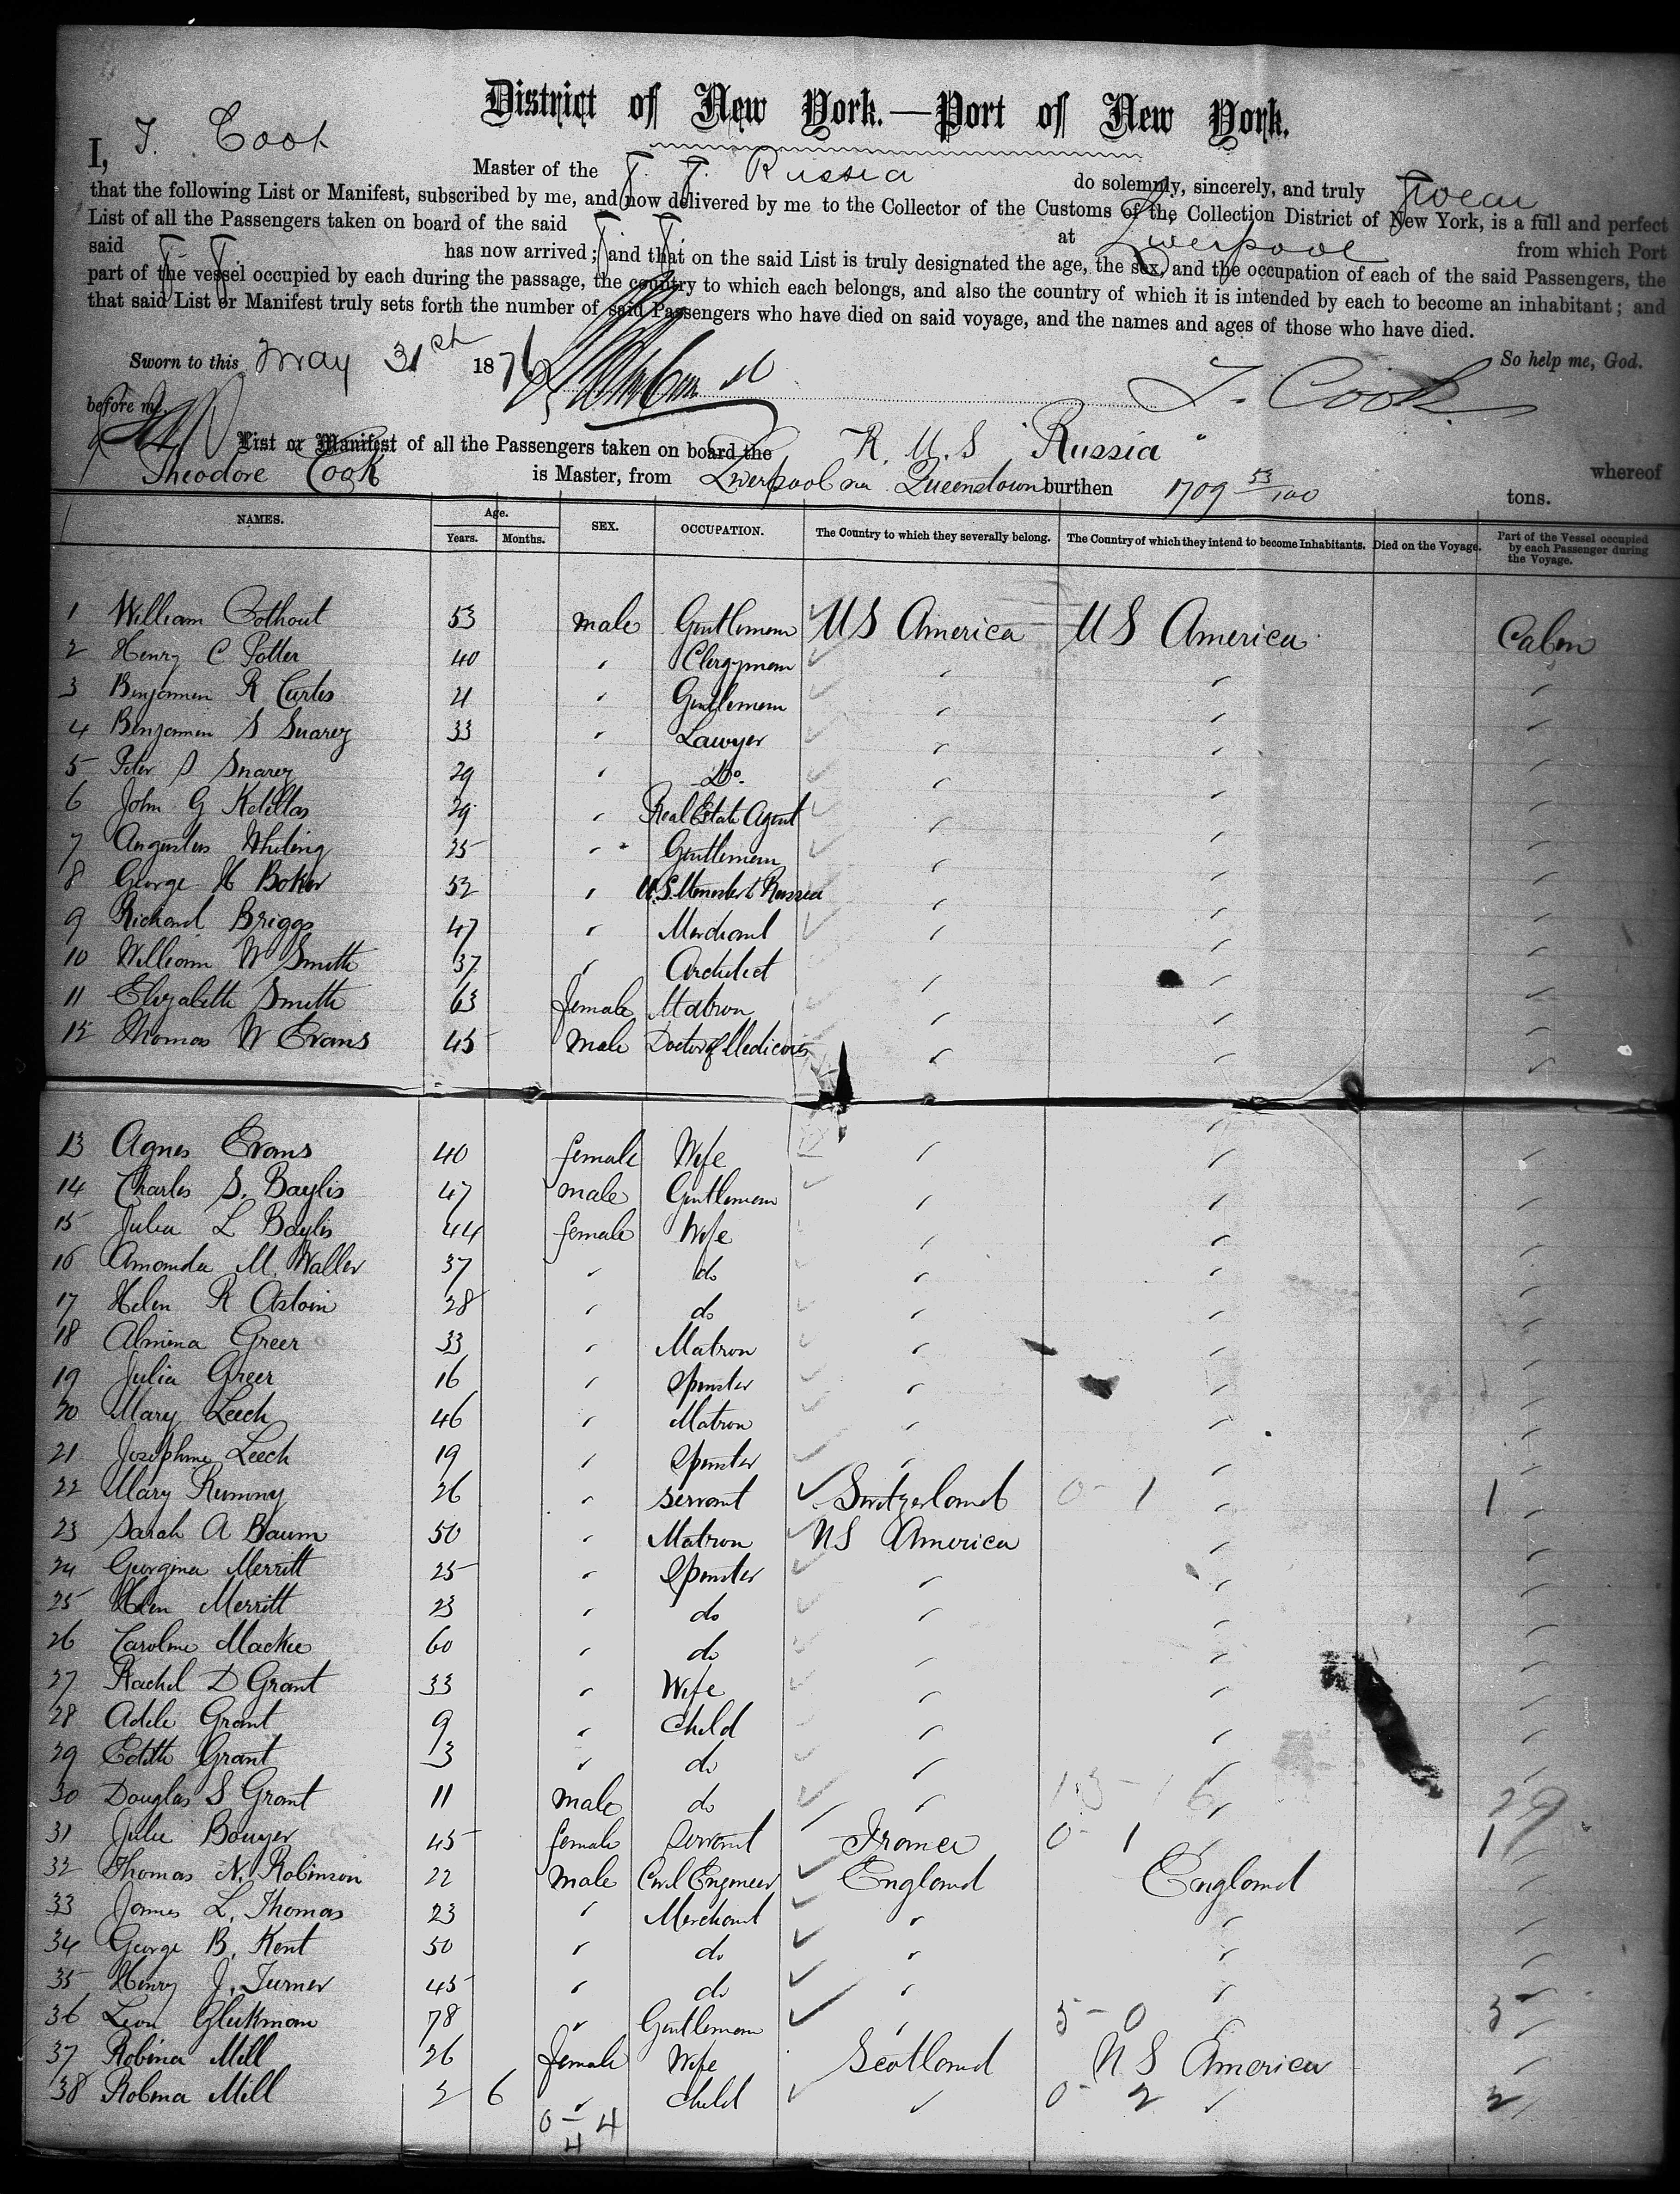 District of New York.—Port of New York.
I, T. Cook Master of the S. S. Russia do solemnly, sincerely, and truly Swear
that the following List or Manifest, subscribed by me, and now delivered by me to the Collector of the Customs of the Collection District of New York, is a full and perfect
List of all the Passengers taken on board of the said S. S. at Liverpool from which Port
said S. S. has now arrived; and that on the said List is truly designated the age, the sex, and the occupation of each of the said Passengers, the
part of the vessel occupied by each during the passage, the country to which each belongs, and also the country of which it is intended by each to become an inhabitant; and
that said List or Manifest truly sets forth the number of said Passengers who have died on said voyage, and the names and ages of those who have died.
Sworn to this May 31st 1876 So help me, God.
before me. T. Cook
List or Manifest of all the Passengers taken on board the R. M. S "Russia" whereof
Theodore Cook is Master, from Liverpool via Queenstown burthen 1709 53/100 tons.
NAMES. Age. Years. Months. SEX. OCCUPATION. The Country to which they severally belong. The Country of which they intend to become Inhabitants. Died on the Voyage. Part of the Vessel occupied by each Passenger during the Voyage.
1 William Oothout 53 male Gentleman US America US America Cabin
2 Henry C Potter 40 " Clergyman " " "
3 Benjamin R Curtis 21 " Gentleman " " "
4 Benjamin S Suarez 33 " Lawyer " " "
5 Peter S Suarez 29 " Do. " " "
6 John G Ketellas 29 " Real Estate Agent " " "
7 Augustus Whiting 25 " Gentleman " " "
8 George H Boker 52 " U.S. Minister to Russia " " "
9 Richard Briggs 47 " Merchant " " "
10 William W Smith 37 " Architect " " "
11 Elizabeth Smith 63 female Matron " " "
12 Thomas W Evans 45 male Doctor of Medicine " " "
13 Agnes Evans 40 female Wife " " "
14 Charles S. Baylis 47 male Gentleman " " "
15 Julia L Baylis 44 female Wife " " "
16 Amanda M. Waller 37 " do " " "
17 Helen R Astoin 28 " do " " "
18 Almina Greer 33 " Matron " " "
19 Julia Greer 16 " Spinster " " "
20 Mary Leech 46 " Matron " " "
21 Josephine Leech 19 " Spinster " " "
22 Mary Rummy 26 " Servant Switzerland 0-1 " 1
23 Sarah A Baum 50 " Matron US America " "
24 Georgina Merritt 25 " Spinster " " "
25 Helen Merritt 23 " do " " "
26 Caroline Mackie 60 " do " " "
27 Rachel D Grant 33 " Wife " " "
28 Adele Grant 9 " Child " " "
29 Edith Grant 3 " do " " "
30 Douglas S Grant 11 male do " 13-16 " 29
31 Julie Bouyer 45 female Servant France 0-1 " 1
32 Thomas N. Robinson 22 male Civil Engineer England England "
33 James L. Thomas 23 " Merchant " " "
34 George B. Kent 50 " do " " "
35 Henry J. Turner 45 " do " " "
36 Leon Glukman 78 " Gentleman " 5-0 " 5
37 Robina Mill 26 female Wife Scotland U S America "
38 Robina Mill 2 6 " Child " 0-2 " 2
0-4
4